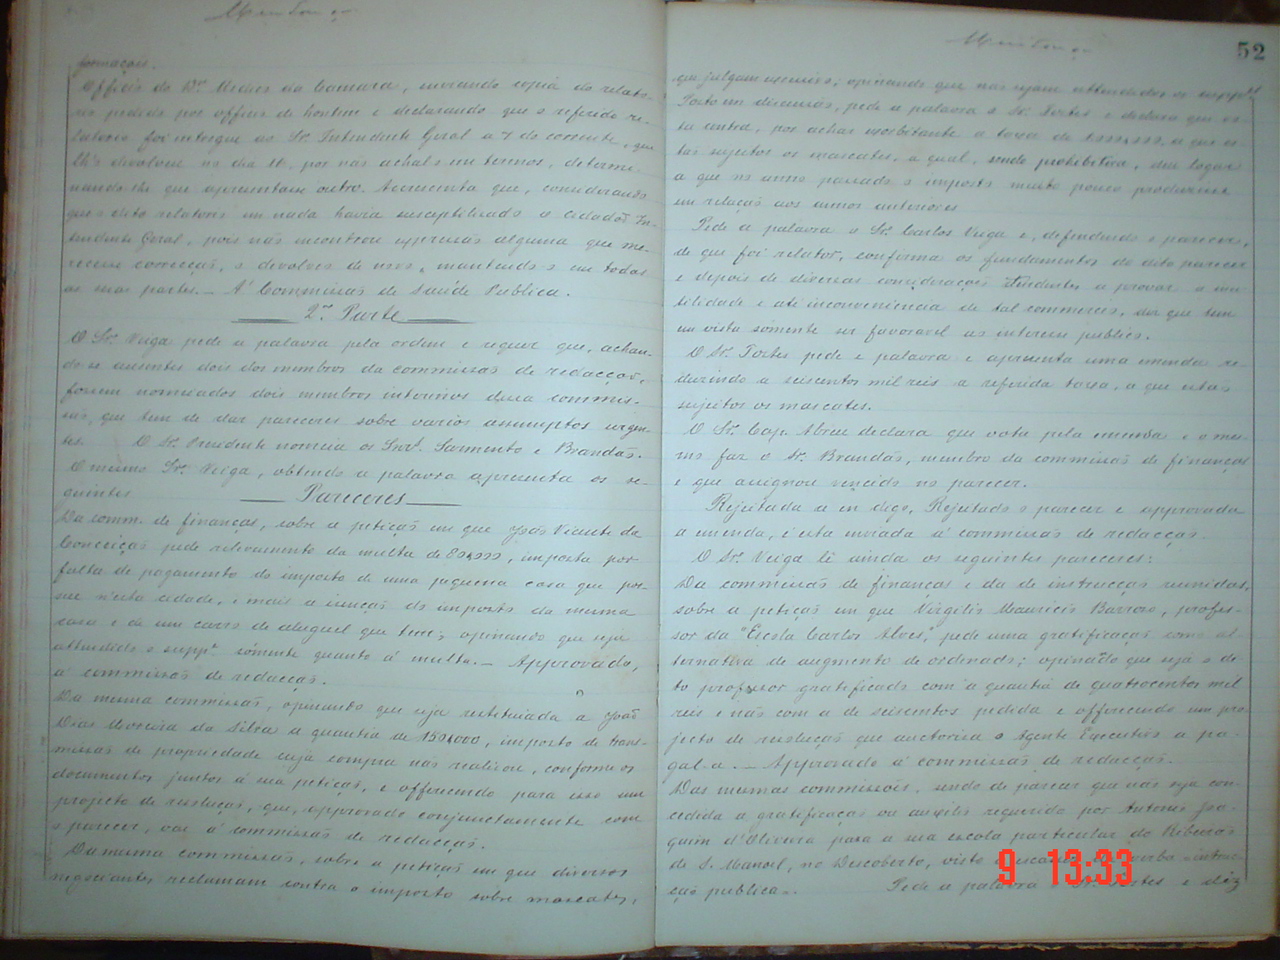 formações.
Officio do Dr. Medico da Camara, enviando copia do relato-
rio pedido por officio de hontem e declarando que o referido re-
latorio foi entregue ao Sr. Intendente Geral a 7 do corrente, que
lh'o devolveu no dia 10, por não achal-o em termos, determi-
nando-lhe que apresentasse outro. Accrescenta que, considerando
que o dito relatorio em nada havia susceptibilisado o cidadão In-
tendente Geral, pois não encontrou expressão alguma que me-
recesse correcção, o devolveu de novo, mantendo-o em todas
as suas partes. — A' Commissão de Saúde Publica.
2ª Parte
O Sr. Veiga pede a palavra pela ordem e requer que, achan-
do-se ausentes dois dos membros da commissão de redacção,
fossem nomeados dois membros interinos dessa commis-
são, que tem de dar pareceres sobre varios assumptos urgen-
tes. O Sr. Presidente nomeia os Snrs. Sarmento e Brandão.
O mesmo Sr. Veiga, obtendo a palavra apresenta os se-
guintes
Pareceres
Da comm. de finanças, sobre a petição em que João Vicente da
Conceição pede relevamento da multa de, imposta por
falta de pagamento do imposto de uma pequena casa que pos-
sue n'esta cidade, e mais a isenção do imposto da mesma
casa e de um carro de aluguel que tem; opinando que seja
attendido o suppe. sómente quanto á multa. — Approvado,
á commissão de redacção.
Da mesma commissão, opinando que seja restituida a João
Dias Moreira da Silva a quantia de 150$000, imposto de trans-
missão de propriedade cuja compra não realizou, conforme os
documentos juntos á sua petição, e offerecendo para isso um
projecto de resolução, que, approvado conjunctamente com
o parecer, vae á commissão de redacção.
Da mesma commissão, sobre a petição em que diversos
negociantes reclamam contra o imposto sobre mascates,
52
que julgam excessivo; opinando que não sejam attendidos os suppes.
Posto em discussão, pede a palavra o Sr. Fortes e declara que vo-
ta contra, por achar exorbitante a taxa de, a que es-
tão sujeitos os mascates, a qual, sendo prohibitiva, deu logar
a que no anno passado o imposto muito pouco produzisse
em relação aos annos anteriores.
Pede a palavra o Sr. Carlos Veiga e, defendendo o parecer,
de que foi relator, confirma os fundamentos do dito parecer
e depois de diversas considerações tendentes a provar a inu-
tilidade e até inconveniencia de tal commercio, diz que tem
em vista sómente ser favoravel ao interesse publico.
O Sr. Fortes pede a palavra e apresenta uma emenda re-
duzindo a seiscentos mil reis a referida taxa, a que estão
sujeitos os mascates.
O Sr. Cap. Abreu declara que vota pela emenda e o mes-
mo faz o Sr. Brandão, membro da commissão de finanças
e que assignou vencido no parecer.
Rejeitada a em digo, Rejeitado o parecer e approvada
a emenda, é esta enviada á commissão de redacção.
O Sr. Veiga lê ainda os seguintes pareceres:
Da commissão de finanças e da de instrucção reunidas,
sobre a petição em que Virgilio Mauricio Barroso, profes-
sor da "Escola Carlos Alves", pede uma gratificação como al-
ternativa de augmento de ordenado; opinando que seja o di-
to professor gratificado com a quantia de quatrocentos mil
reis e não com a de seiscentos pedida e offerecendo um pro-
jecto de resolução que auctorisa o Agente Executivo a pa-
gal-a. — Approvado á commissão de redacção.
Das mesmas commissões, sendo de parecer que não seja con-
cedida a gratificação ou auxilio requerido por Antonio Joa-
quim d'Oliveira para a sua escola particular do Ribeirão
de S. Manoel, no Descoberto, visto verba instruc-
ção publica. Pede a palavra o Sr. Fortes e diz
9 13:33